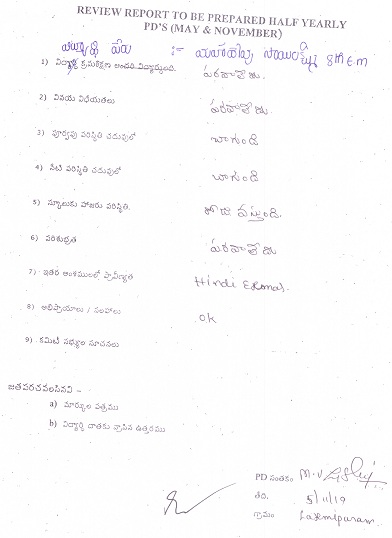 REVIEW REPORT TO BE PREPARED HALF YEARLY
PD'S (MAY & NOVEMBER)
విద్యార్థి పేరు :- సాయిలక్ష్మి 8th E.M
1) విద్యార్థి క్రమశిక్షణ అందరి విద్యార్థులది. పరవాలేదు.
2) వినయ విధేయతలు పరవాలేదు.
3) పూర్వపు పరిస్థితి చదువులో బాగుంది
4) నేటి పరిస్థితి చదువులో బాగుంది
5) స్కూలుకు హాజరు పరిస్థితి. రోజు వస్తుంది.
6) పరిశుభ్రత పరవాలేదు
7) ఇతర అంశములలో ప్రావీణ్యత Hindi Exams.
8) అభిప్రాయాలు / సలహాలు ok
9) కమిటీ సభ్యుల సూచనలు
జతపరచవలసినవి –
a) మార్కుల పత్రము
b) విద్యార్థి దాతకు వ్రాసిన ఉత్తరము
PD సంతకం M.V
తేది. 5/11/19
గ్రామం Laxmipuram.